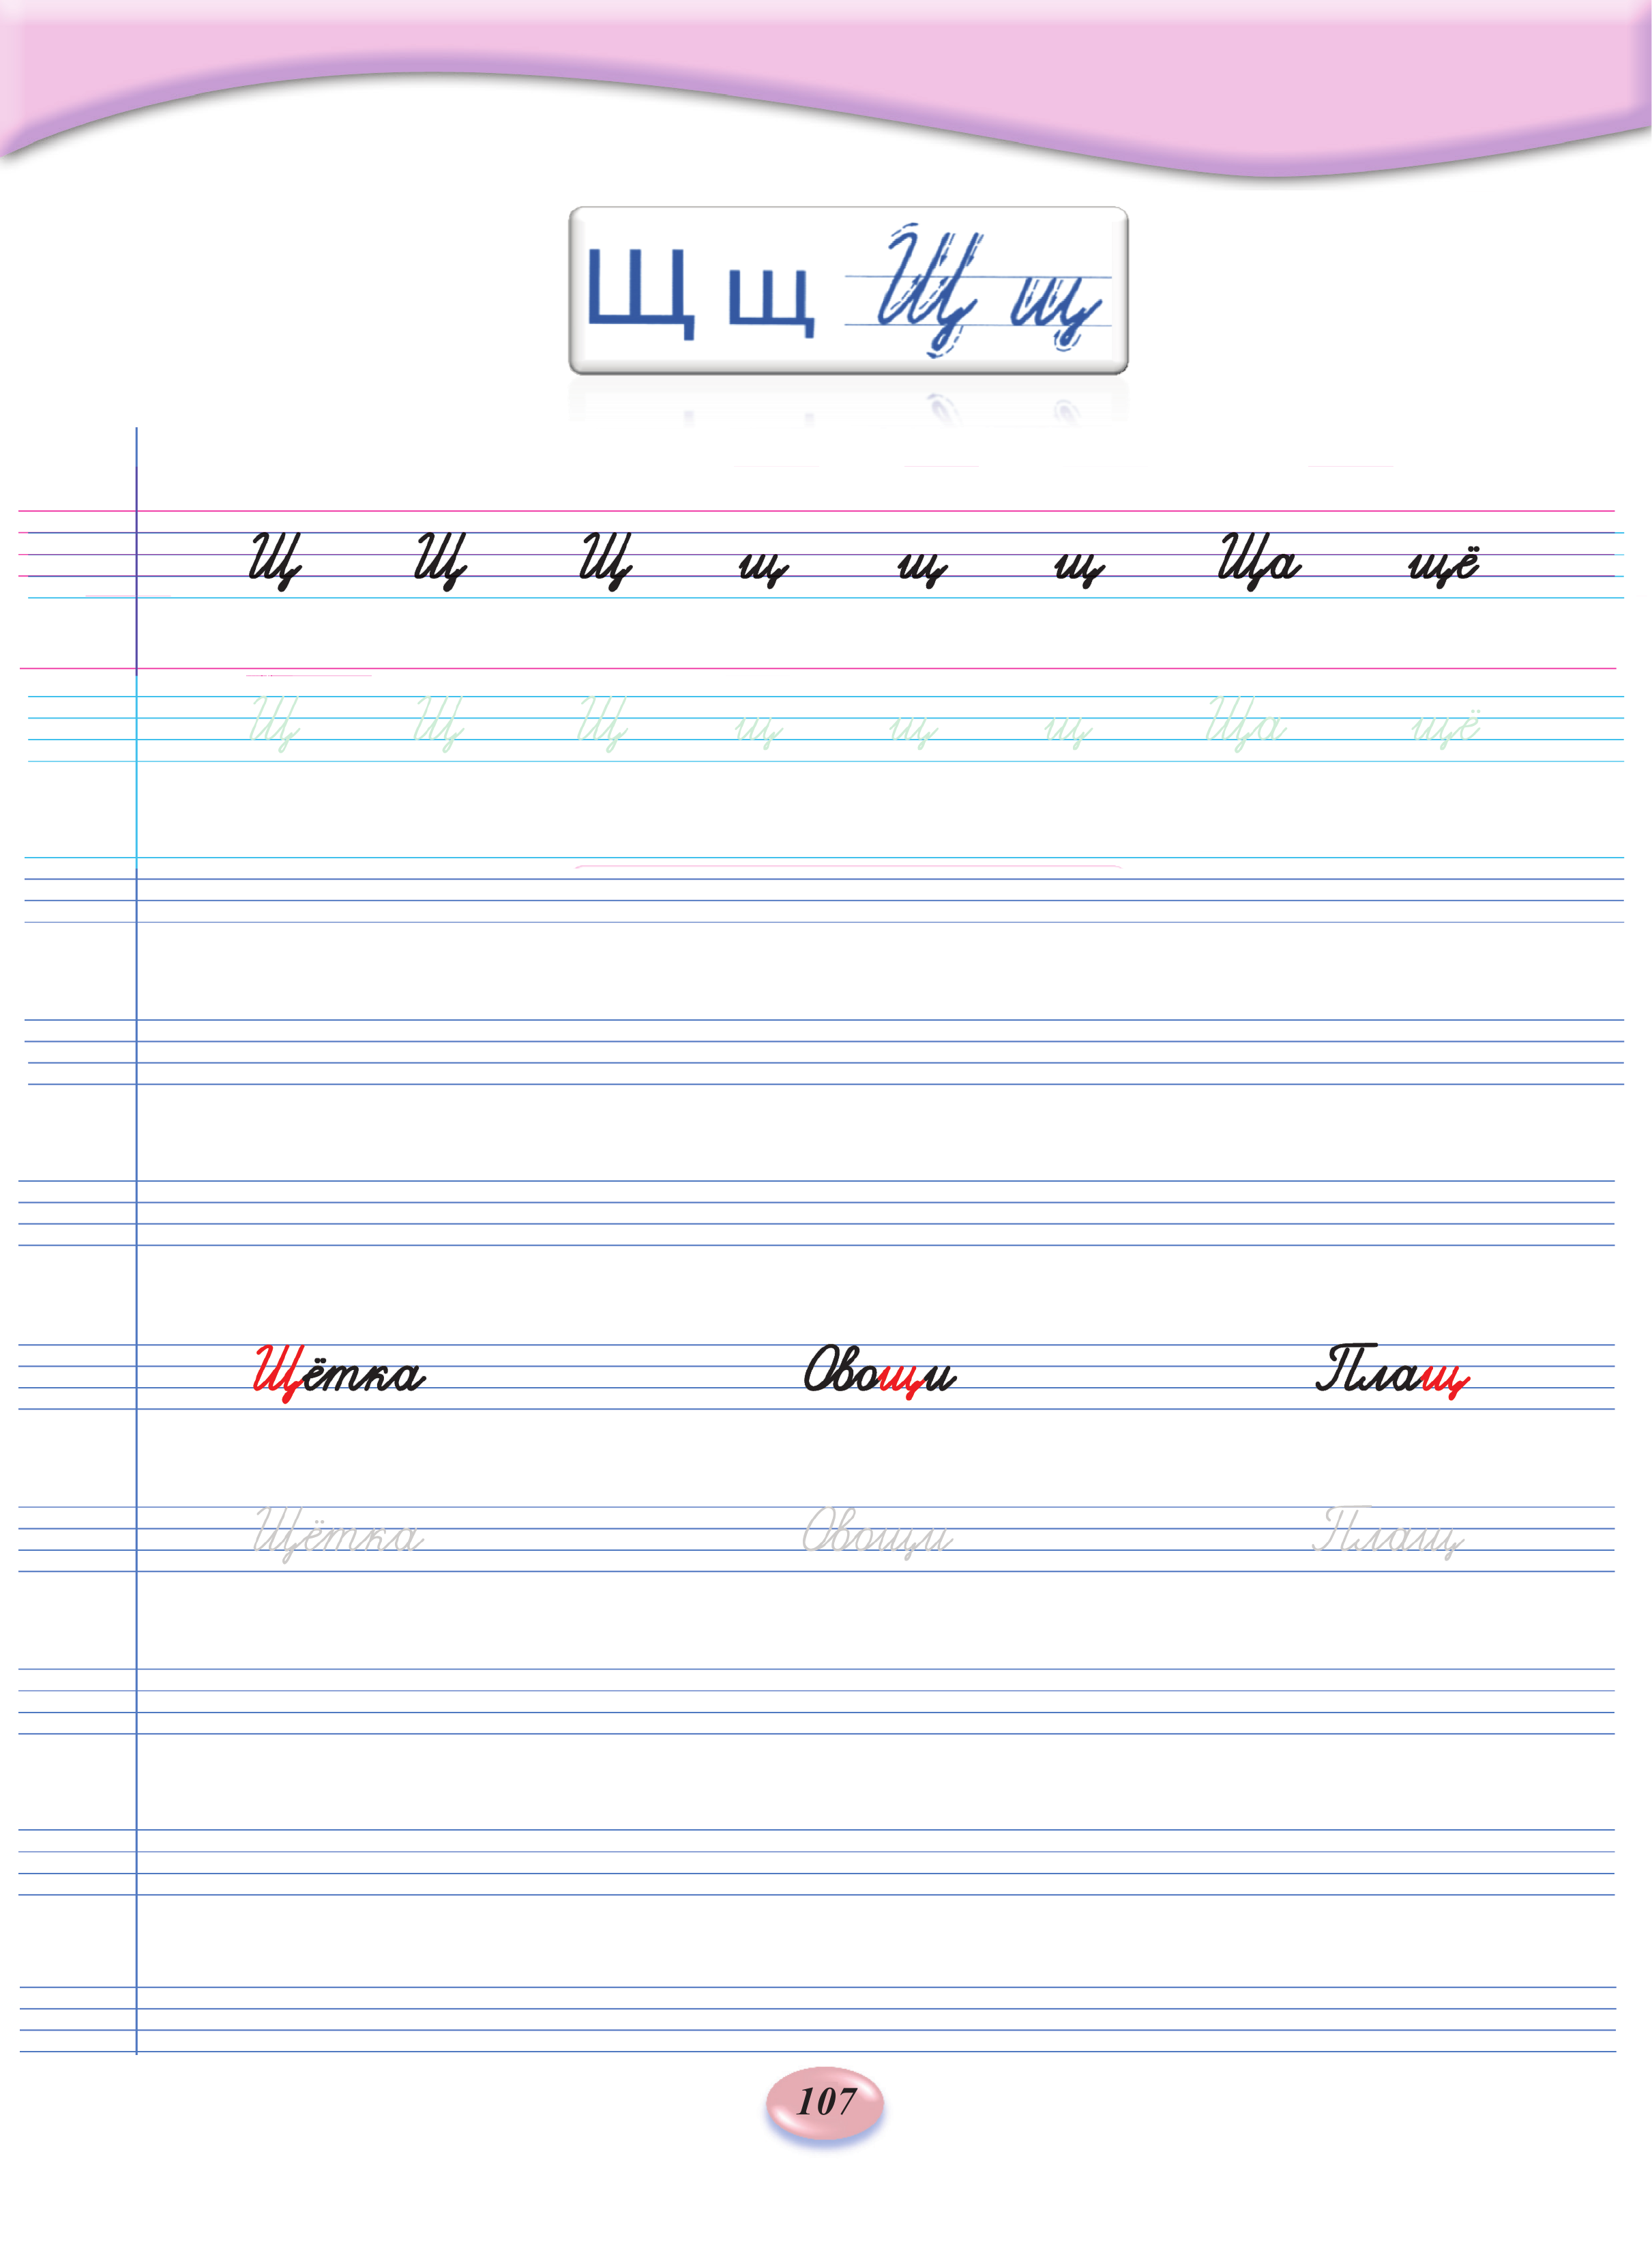 Щ щ Щ щ
Щ Щ Щ щ щ щ Ща щё
Щ Щ Щ щ щ щ Ща щё
Щётка Овощи Плащ
Щётка Овощи Плащ
107